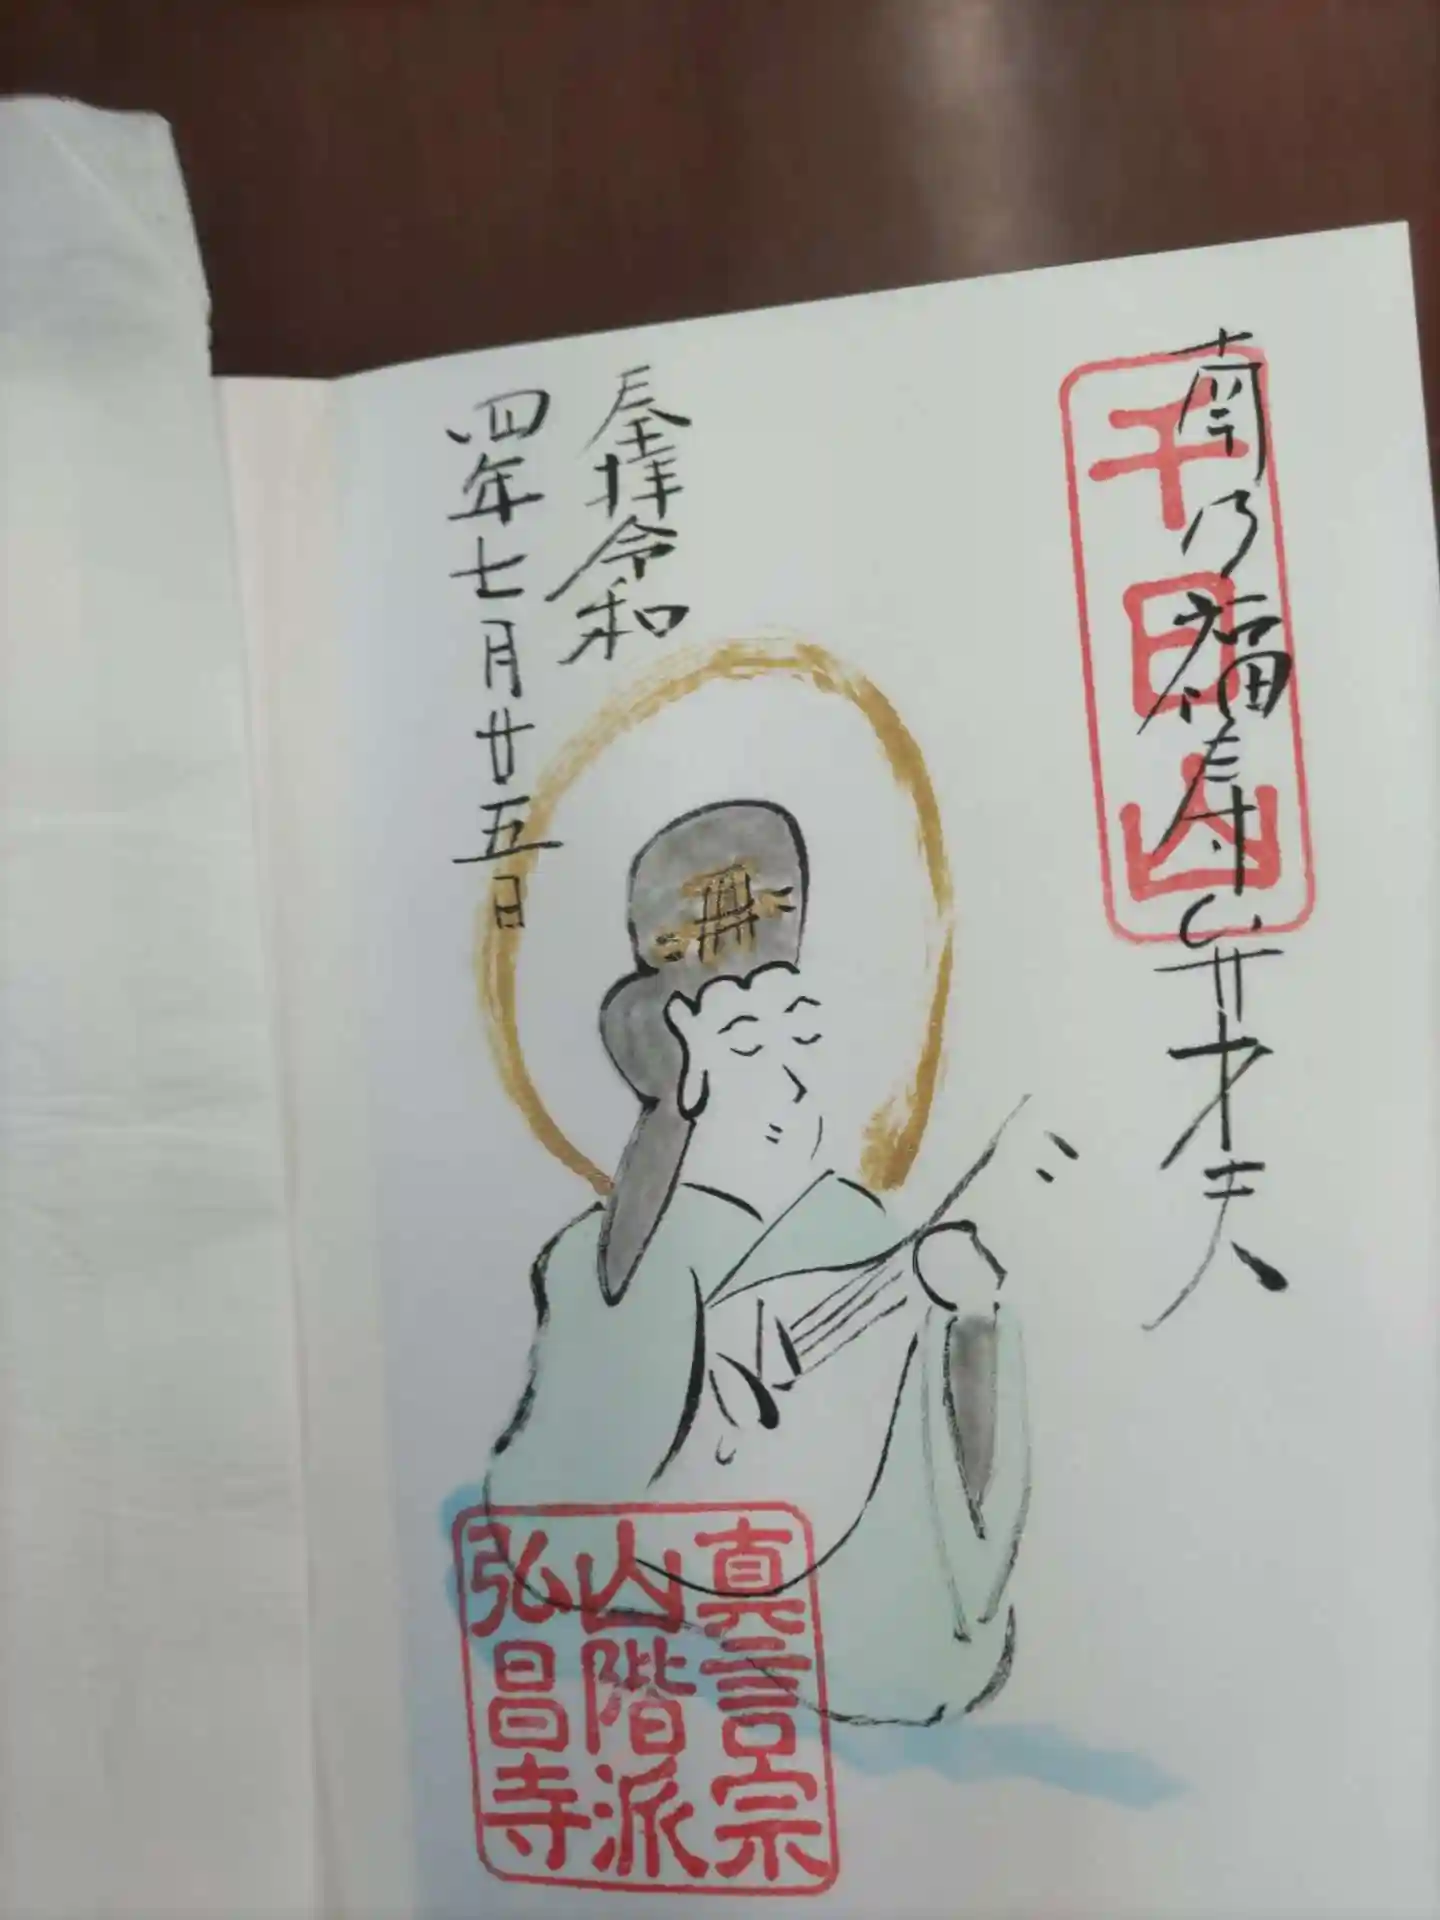 南乃福寿弁才天
千日山
奉拝令和
四年七月廿五日
真言宗
山階派
弘昌寺